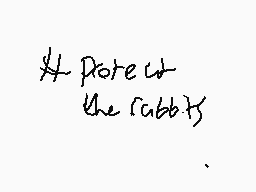 # protect
the rabbits